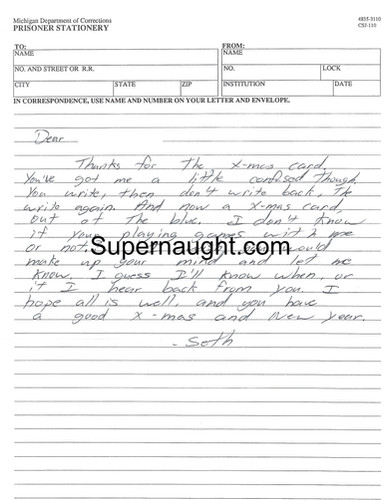 Michigan Department of Corrections
PRISONER STATIONERY
4835-3110
CSJ-110
TO:
FROM:
NAME
NAME
NO. AND STREET OR R.R.
NO.
LOCK
CITY
STATE
ZIP
INSTITUTION
DATE
IN CORRESPONDENCE, USE NAME AND NUMBER ON YOUR LETTER AND ENVELOPE.
Dear
Thanks for the X-mas card.
You've got me a little confused though.
You write, then don't write back. The
write again. And now a X-mas card,
out of the blue. I don't know
if your playing games with me
or not. would
Supernaught.com
make up your mind and let me
know. I guess I'll know when, or
if I hear back from you. I
hope all is well, and you have
a good X-mas and New year.
- Seth